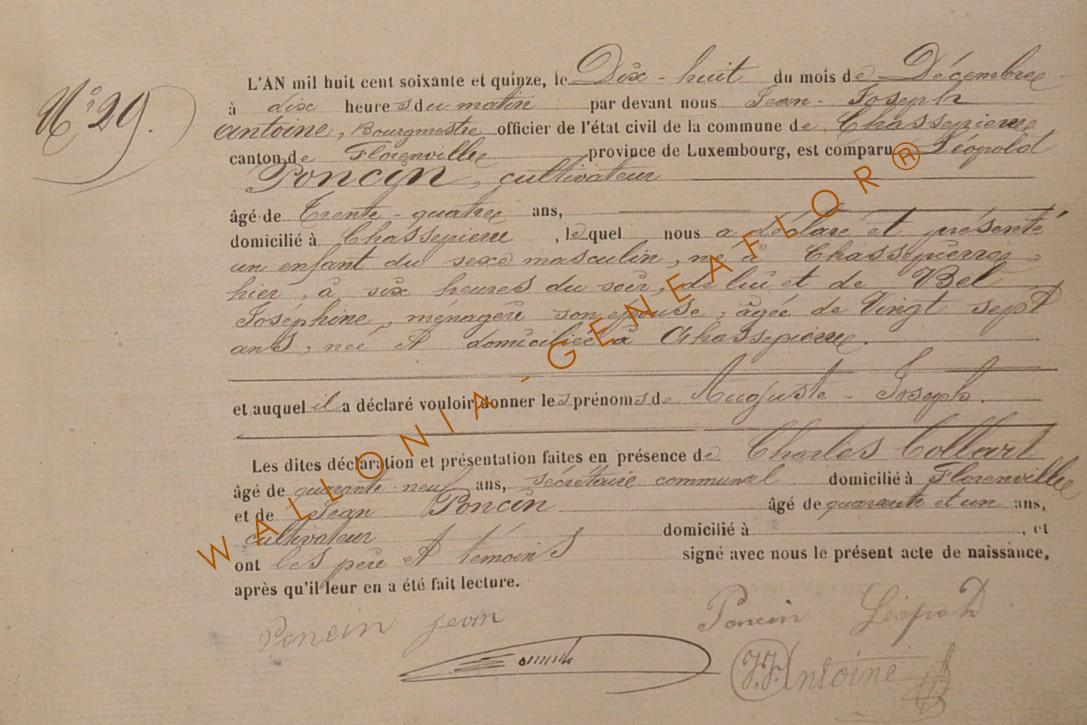 N° 29.
L'AN mil huit cent soixante et quinze, le Dix-huit du mois de Décembre
à dix heures du matin par devant nous Jean-Joseph
Antoine, Bourgmestre officier de l'état civil de la commune de Chassepierre
canton de Florenville province de Luxembourg, est comparu Léopold
Poncin, cultivateur
âgé de Trente-quatre ans,
domicilié à Chassepierre, lequel nous a déclaré et présenté
un enfant du sexe masculin, né à Chassepierre,
hier, à six heures du soir, de lui et de Bel
Josephine, ménagère son epouse, âgée de Vingt sept
ans, née et domiciliée à Chassepierre.
et auquel il a déclaré vouloir donner les prénoms de Auguste-Joseph.
Les dites déclaration et présentation faites en présence de Charles Collart
âgé de quarante-neuf ans, Sécrétaire communal domicilié à Florenville
et de Jean Poncin âgé de quarante et un ans,
cultivateur domicilié à , et
ont les père et témoins signé avec nous le présent acte de naissance,
après qu'il leur en a été fait lecture.
Poncin jean Poncin Léopold
J.J. Antoine
WALLONIA-GENEAFLOR®